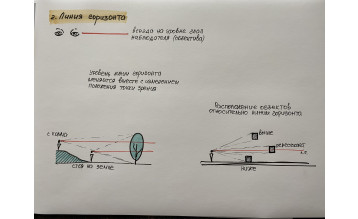 2. Линия горизонта
всегда на уровне глаз
наблюдателя (объектива)
уровень линии горизонта
меняется вместе с изменением
положения точки зрения
Расположение объектов
относительно линии горизонта
с холма
стоя на земле
выше
пересекает
ниже